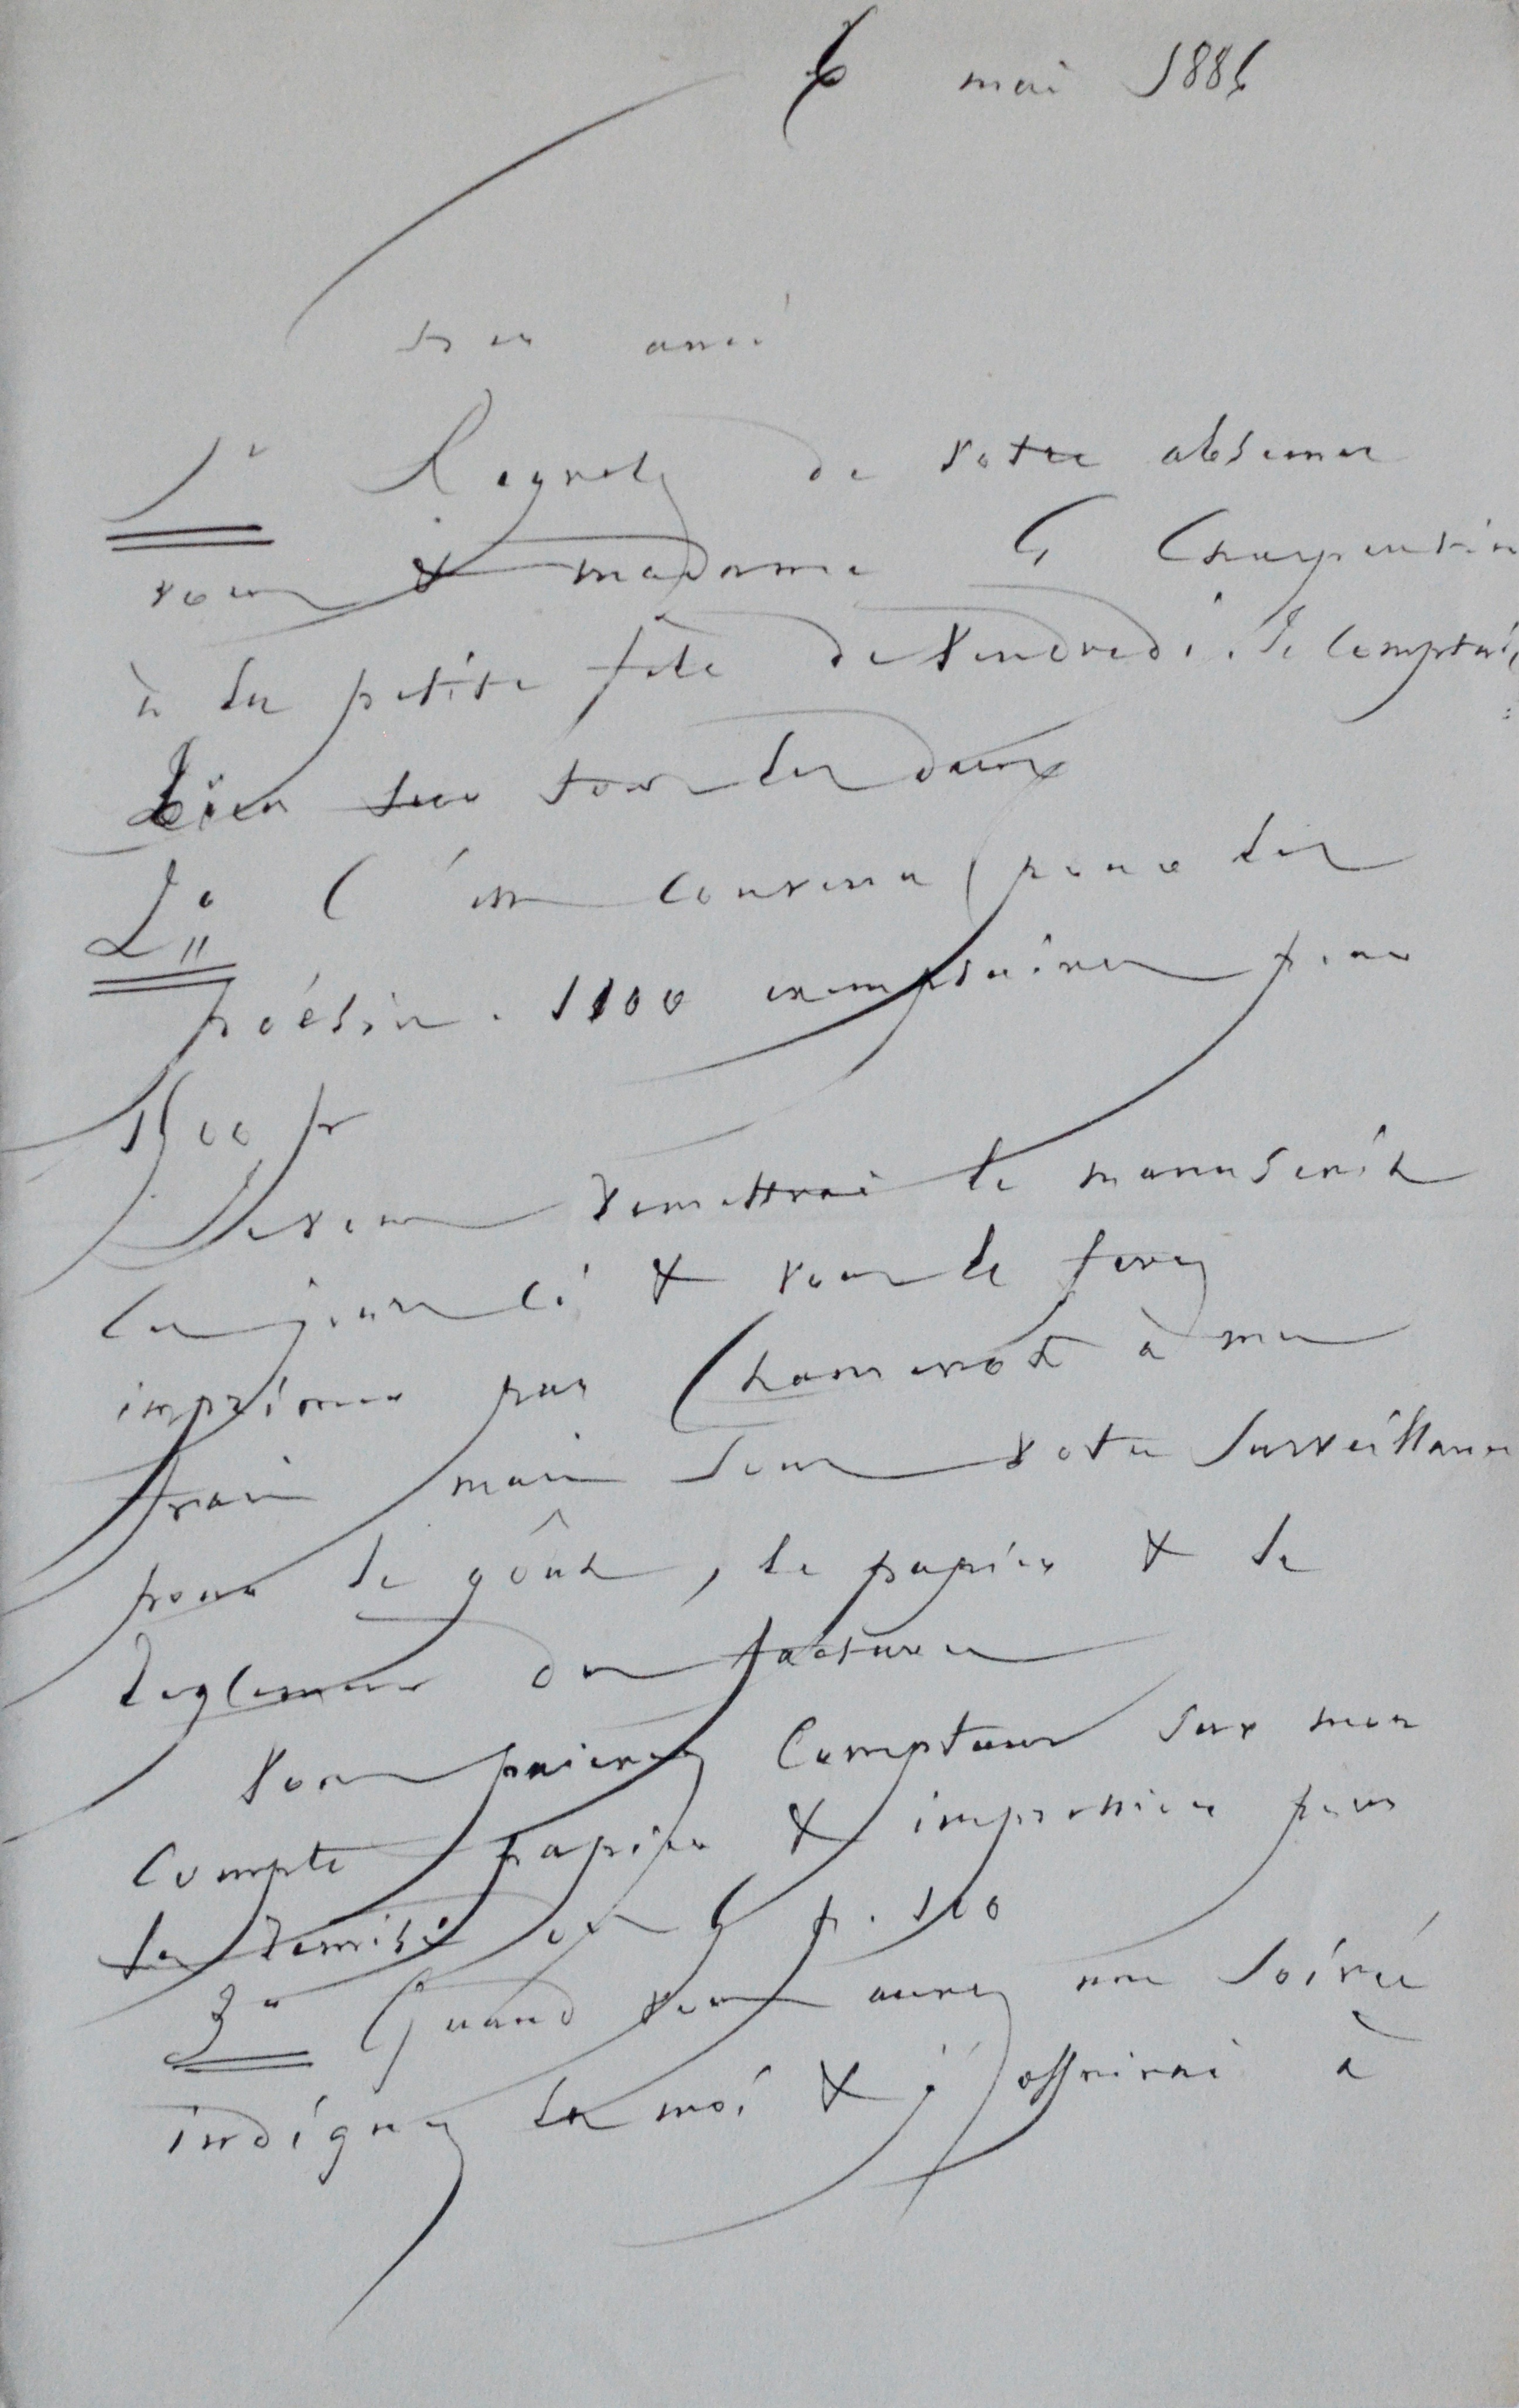 6 mai 1886
mon ami
1° Regrets de votre absence
vous & madame G Charpentier
à la petite fête de vendredi. Je comptais
bien sur tous les deux
2° C'est convenu pour les
poésies. 1100 exemplaires pour
1500 fr
Je vous remettrai le manuscrit
ces jours ci & vous le ferez
imprimer par Chamerot à mes
frais mais sous votre surveillance
pour le goût, le papier & le
règlement des factures
Vous paierez comptant sur mon
compte papier & impression pour
la remise de 5 p. 100
3° Quand vous aurez une soirée
indiquez la moi & j'offrirai à